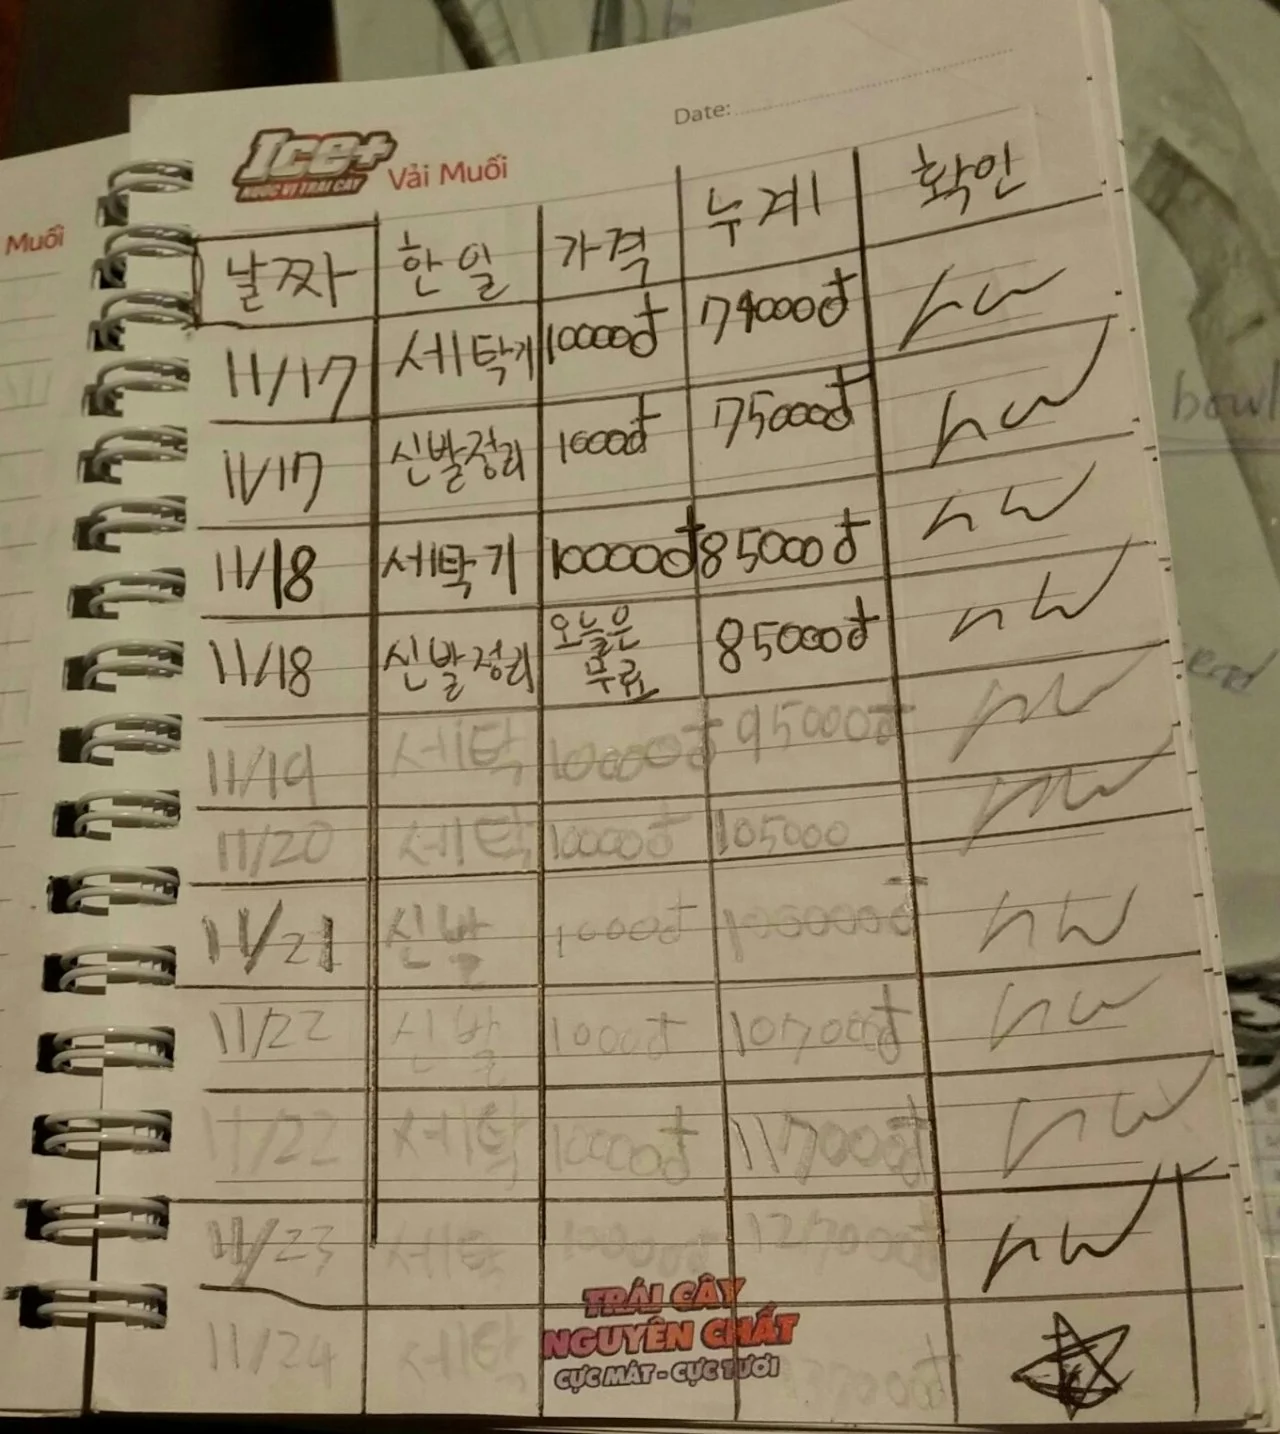 Muối
Ice+
NƯỚC VỊ TRÁI CÂY
Vải Muối
Date:
날짜 한일 가격 누계 확인
11/17 세탁기 10000đ 74000đ
11/17 신발정리 1000đ 75000đ
11/18 세탁기 10000đ 85000đ
11/18 신발정리 오늘은 무료 85000đ
11/19 세탁 10000đ 95000đ
11/20 세탁 10000đ 105000
11/21 신발 1000đ
11/22 신발 1000đ 107000đ
11/22 세탁 10000đ 117000đ
11/23 세탁 10000đ 127000đ
11/24 세탁
TRÁI CÂY
NGUYÊN CHẤT
CỰC MÁT - CỰC TƯƠI
bowl